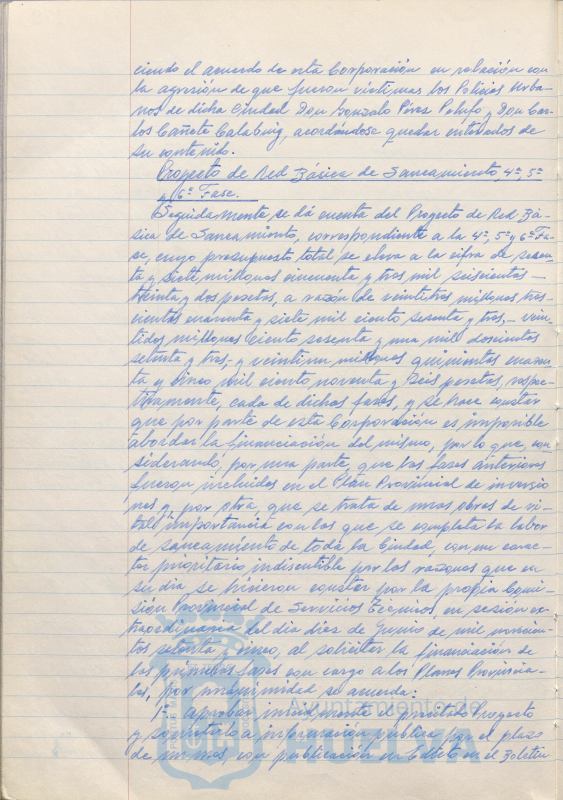 ciendo el acuerdo de esta Corporación en relación con
la agresión de que fueron víctimas los Policías Urba-
nos de dicha Ciudad Don Gonzalo Pérez y Don Car-
los Cañete Calabuig, acordándose quedar enterados de
su contenido.
Proyecto de Red Básica de Saneamiento, 4ª, 5ª
y 6ª Fase.
Seguidamente se dá cuenta del Proyecto de Red Bá-
sica de Saneamiento, correspondiente a la 4ª, 5ª y 6ª Fa-
se, cuyo presupuesto total se eleva a la cifra de sesen-
ta y siete millones cincuenta y tres mil seiscientas
treinta y dos pesetas, a razón de veintitres millones tres-
cientas cuarenta y siete mil ciento sesenta y tres, – vein-
tidos millones ciento sesenta y una mil doscientas
setenta y tres, y veintiun millones quinientas cuaren-
ta y cinco mil ciento noventa y seis pesetas, respec-
tivamente, cada de dichas fases, y se hace constar
que por parte de esta Corporación es imposible
abordar la financiación del mismo, por lo que, con-
siderando, por una parte, que las fases anteriores
fueron incluidas en el Plan Provincial de inversio
nes y, por otra, que se trata de unas obras de vi-
tal importancia con las que se completa la labor
de saneamiento de toda la Ciudad, con un carac-
ter prioritario indiscutible por las razones que en
su dia se hicieron constar por la propia Comi-
sión Provincial de Servicios Técnicos en sesión ex-
traordinaria del dia diez de Junio de mil novecien-
tos setenta y cinco, al solicitar la financiación de
las primeras fases con cargo a los Planes Provincia-
les, por unanimidad se acuerda:
1º Aprobar inicialmente el precitado Proyecto
y someterlo a información pública por el plazo
de un mes, con publicación de Edicto en el Boletin
Ayuntamiento de
HUELVA